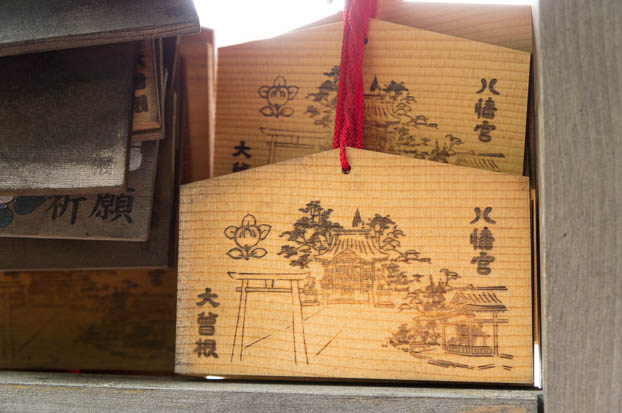 八幡宮
大曽
八幡宮
大曽根
祈願